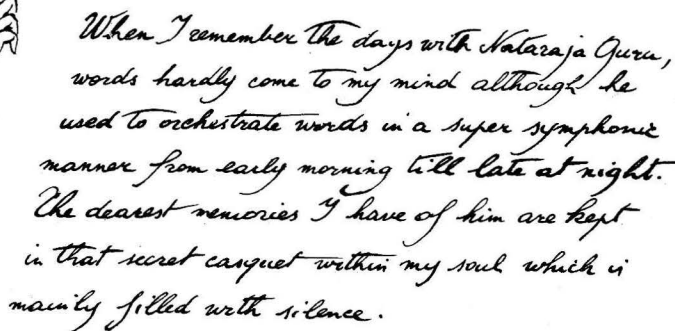 When I remember the days with Nataraja Guru,
words hardly come to my mind although he
used to orchestrate words in a super symphonic
manner from early morning till late at night.
The dearest memories I have of him are kept
in that secret casquet within my soul which is
mainly filled with silence.